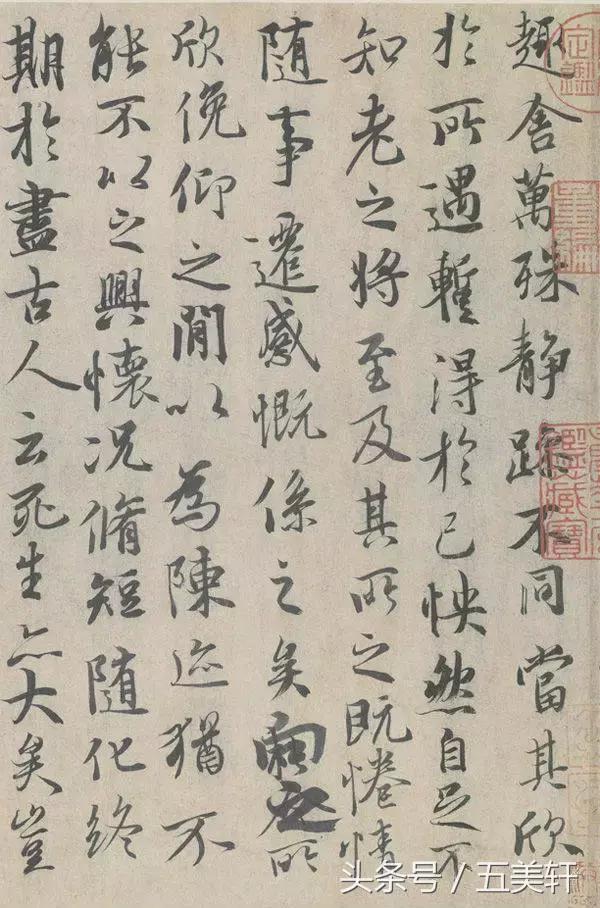 趣舍萬殊静躁不同當其欣
於所遇蹔得於己怏然自足不
知老之将至及其所之既惓情
随事遷感慨係之矣向之所
欣俛仰之閒以為陳迹猶不
能不以之興懷况脩短随化終
期於盡古人云死生亦大矣豈
头条号 / 五美轩